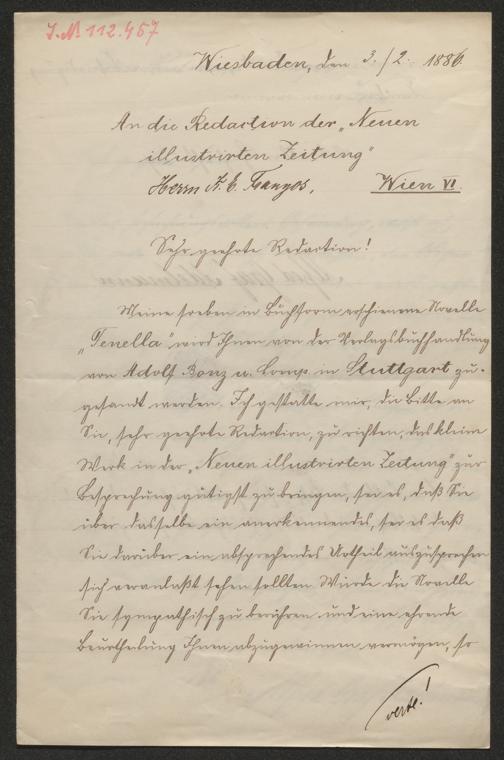 I.N. 112.457
Wiesbaden, den 3./2. 1886.
An die Redaction der „Neuen
illustrirten Zeitung"
Herrn K. E. Franzos,
Wien VI.
Sehr geehrte Redaction!
Meine soeben in Buchform erschienene Novelle
„Tenella" wird Ihnen von der Verlagsbuchhandlung
von Adolf Bonz u. Comp. in Stuttgart zu-
gesandt werden. Ich gestatte mir, die Bitte an
Sie, sehr geehrte Redaction, zu richten, das kleine
Werk in der „Neuen illustrirten Zeitung" zur
Besprechung gütigst zu bringen, sei es, daß Sie
über dasselbe ein anerkennendes, sei es daß
Sie darüber ein absprechendes Urtheil auszusprechen
sich veranlaßt sehen sollten. Würde die Novelle
Sie sympathisch zu berühren und eine ehrende
Beurtheilung Ihnen abzugewinnen vermögen, so
verte!